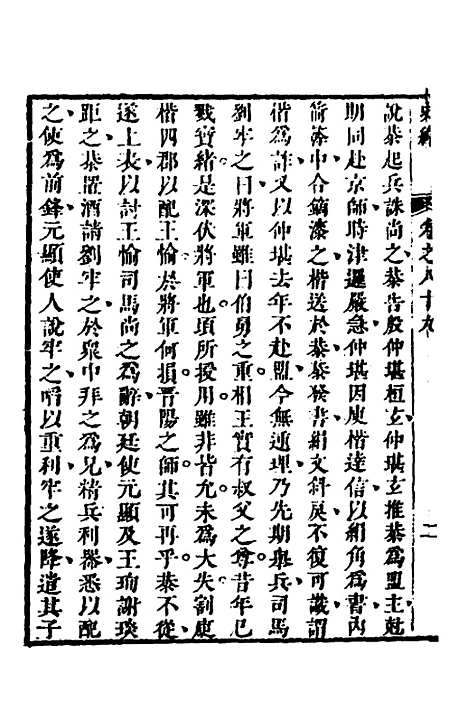 說恭起兵誅尚之恭告殷仲堪桓玄仲堪玄推恭爲盟主尅
期同赴京師時津邏嚴急仲堪因庾楷達信以絹角爲書內
箭漆中合鏑漆之楷送於恭恭發書絹文斜戾不復可識謂
楷爲詐又以仲堪去年不赴盟今無連理乃先期舉兵司馬
劉牢之曰將軍雖曰伯舅之重相王實有叔父之尊昔年已
戮寳緒是深伏將軍也頃所授用雖非皆允未爲大失割庾
楷四郡以配王愉於將軍何損晉陽之師其可再乎恭不從
遂上表以討王愉司馬尚之爲辭朝廷使元顯及王珣謝琰
距之恭置酒請劉牢之於衆中拜之爲兄精兵利器悉以配
之使爲前鋒元顯使人說牢之啗以重利牢之遂降遣其子
史緯
卷之八十九
二